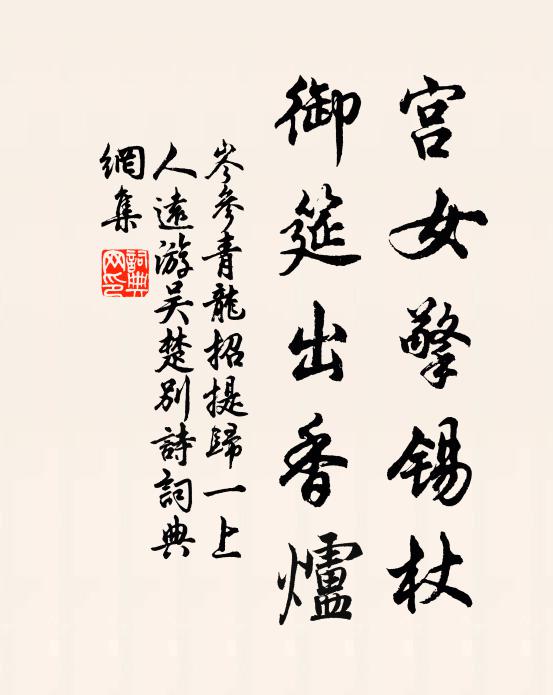 宫女擎锡杖
御筵出香爐
岑參青龍招提歸一上
人遠游吴楚别詩詞典
網集
詞典
网印